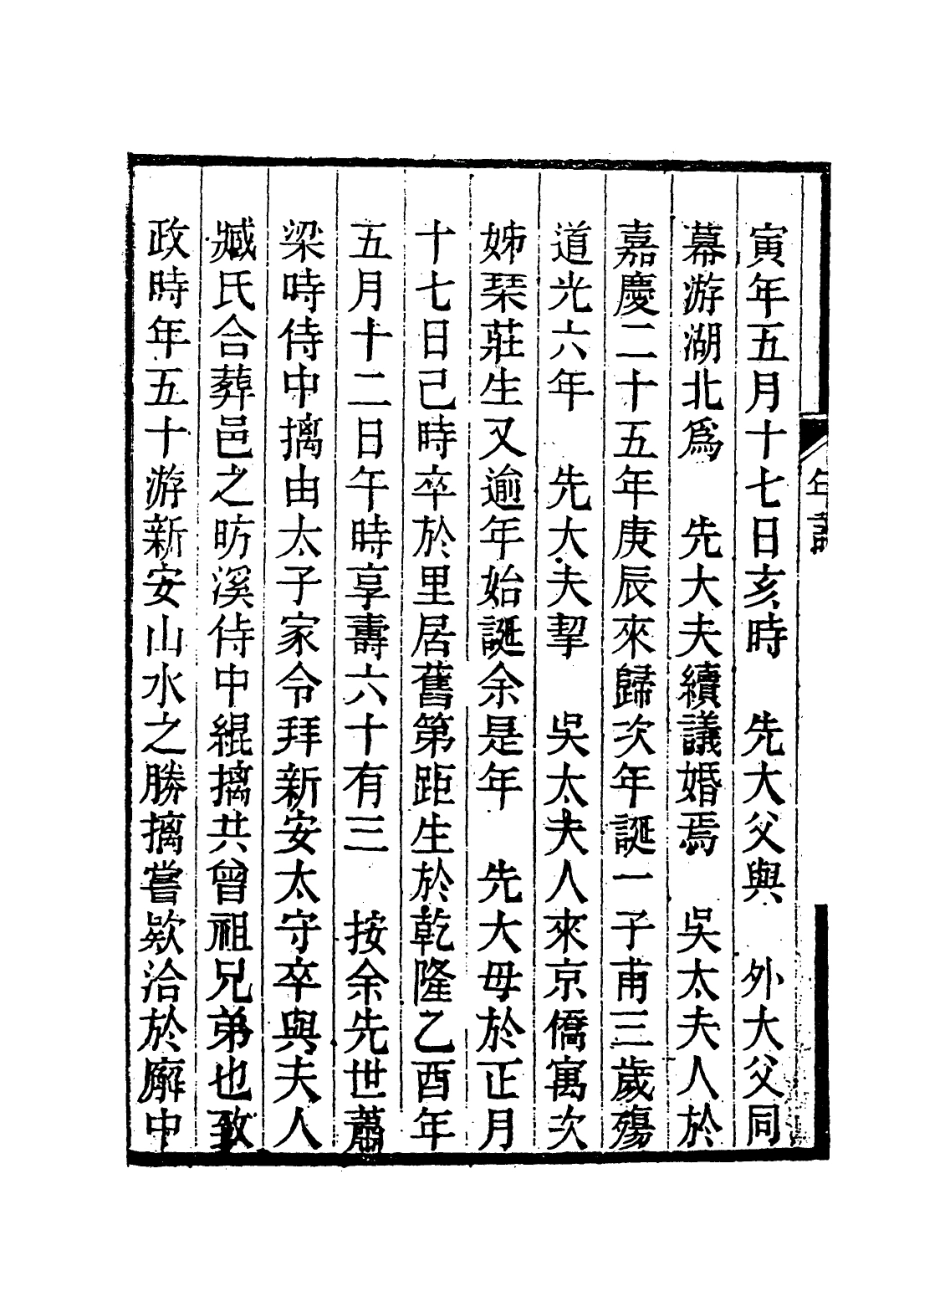 年譜
寅年五月十七日亥時　先大父與　外大父同
幕游湖北爲　先大夫續議婚焉　吳太夫人於
嘉慶二十五年庚辰來歸次年誕一子甫三歲殤
道光六年　先大夫挈　吳太夫人來京僑寓次
姊琹莊生又逾年始誕余是年　先大母於正月
十七日己時卒於里居舊第距生於乾隆乙酉年
五月十二日午時享壽六十有三　按余先世蕭
梁時侍中摛由太子家令拜新安太守卒與夫人
臧氏合葬邑之昉溪侍中緄摛共曾祖兄弟也致
政時年五十游新安山水之勝摛嘗欵洽於廨中